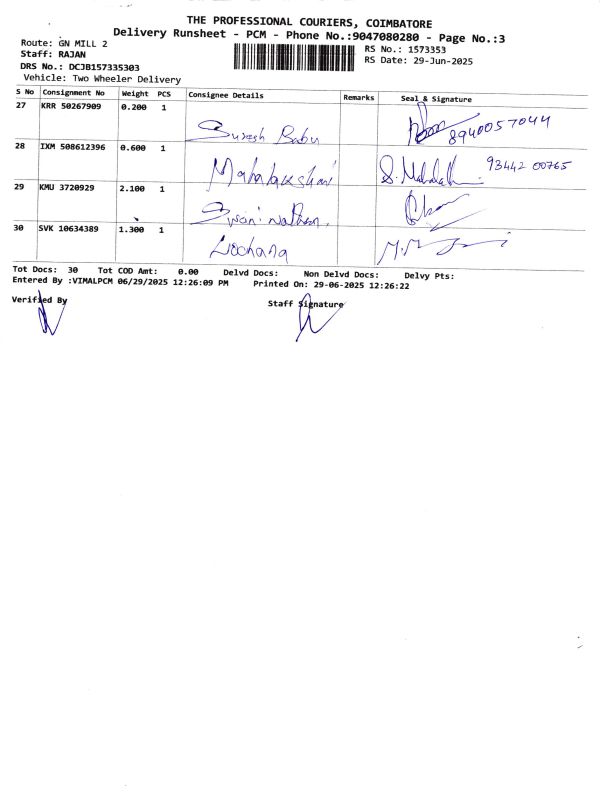 THE PROFESSIONAL COURIERS, COIMBATORE
Delivery Runsheet - PCM - Phone No.:9047080280 - Page No.:3
Route: GN MILL 2
RS No.: 1573353
Staff: RAJAN
RS Date: 29-Jun-2025
DRS No.: DCJB157335303
Vehicle: Two Wheeler Delivery
S No Consignment No Weight PCS Consignee Details Remarks Seal & Signature
27 KRR 50267909 0.200 1
Suresh Babu 8940057044
28 IXM 508612396 0.600 1
Mahalakshmi 93442 00765
29 KMU 3720929 2.100 1
30 SVK 10634389 1.300 1
Tot Docs: 30 Tot COD Amt: 0.00 Delvd Docs: Non Delvd Docs: Delvy Pts:
Entered By :VIMALPCM 06/29/2025 12:26:09 PM Printed On: 29-06-2025 12:26:22
Verified By Staff Signature